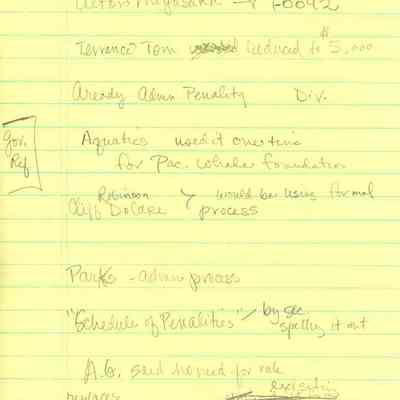 Miyasaki → F-0042
Terrance Tom reduced to $5,000
Aready Admn Penality Div.
Gov. Ref
Aquatics used it one time
for Pac. Whale foundation
Robinson would be using formal
Cliff DoCare process
Parks - admn process
"Schedule of Penalities" by sec.
spelling it out
A.G. said no need for rule
existing